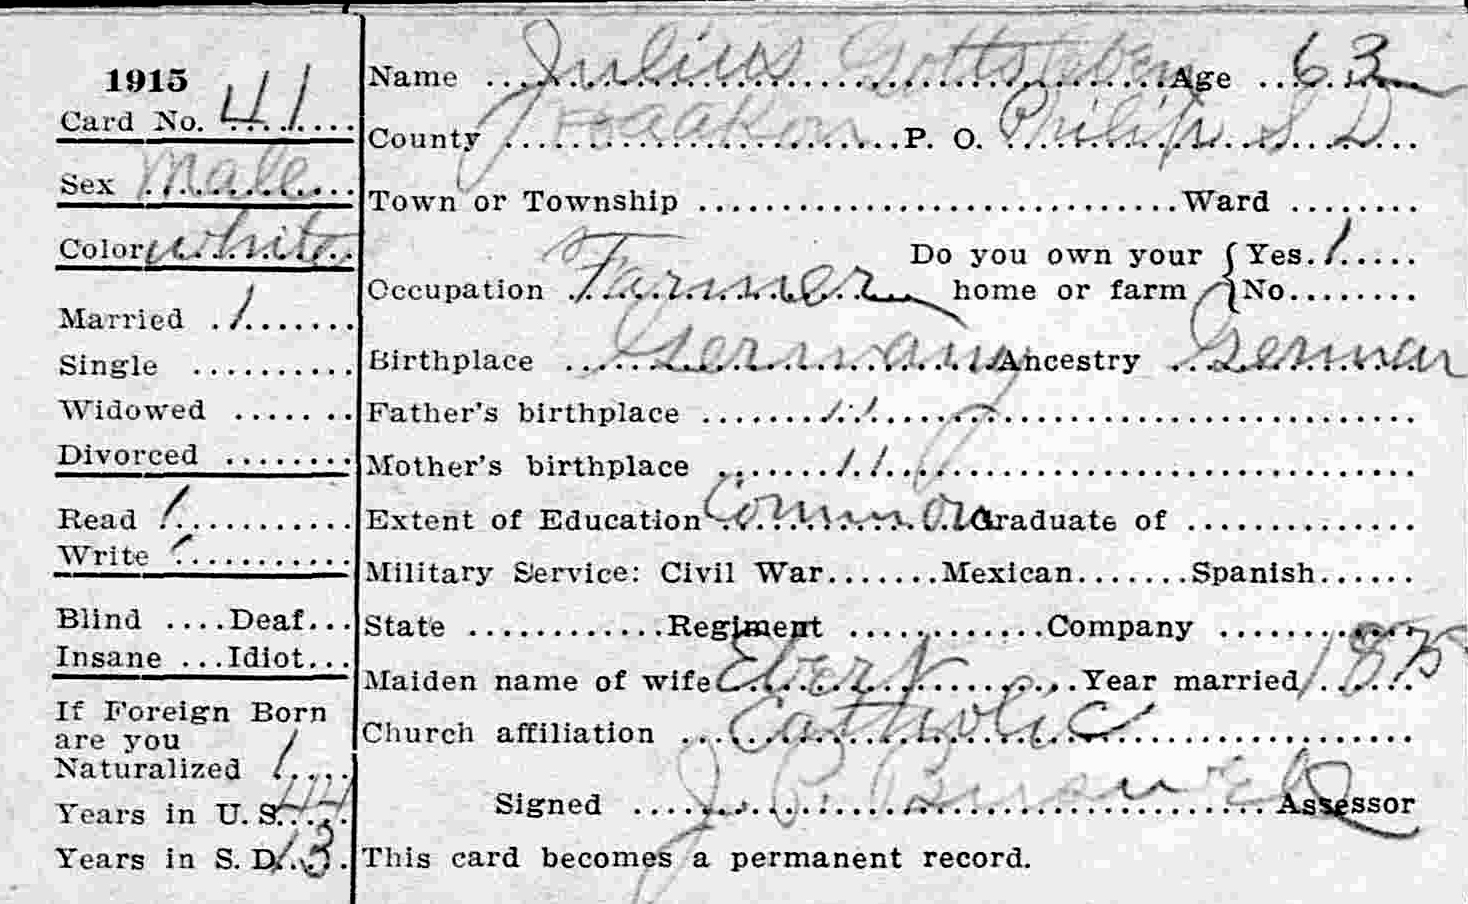 1915
Card No. 41
Sex Male
Color white
Married 1
Single
Widowed
Divorced
Read 1
Write 1
Blind Deaf
Insane Idiot
If Foreign Born
are you
Naturalized 1
Years in U. S. 44
Years in S. D. 13
Name Julius Gottsleben Age 63
County Haakon P. O. Philip S D
Town or Township Ward
Occupation Farmer Do you own your home or farm { Yes. 1 No
Birthplace Germany Ancestry German
Father's birthplace 11
Mother's birthplace 11
Extent of Education Common Graduate of
Military Service: Civil War Mexican Spanish
State Regiment Company
Maiden name of wife Ebert Year married 1875
Church affiliation Catholic
Signed J. P. Assessor
This card becomes a permanent record.